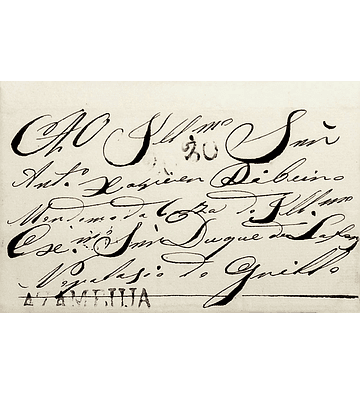 Ao Illmo Snr
30
Anto Xavier Ribeiro
Mordomo da Caza do Illmo
Exmo Snr Duque de Lafoes
No palasio do Grillo
AZAMBUJA